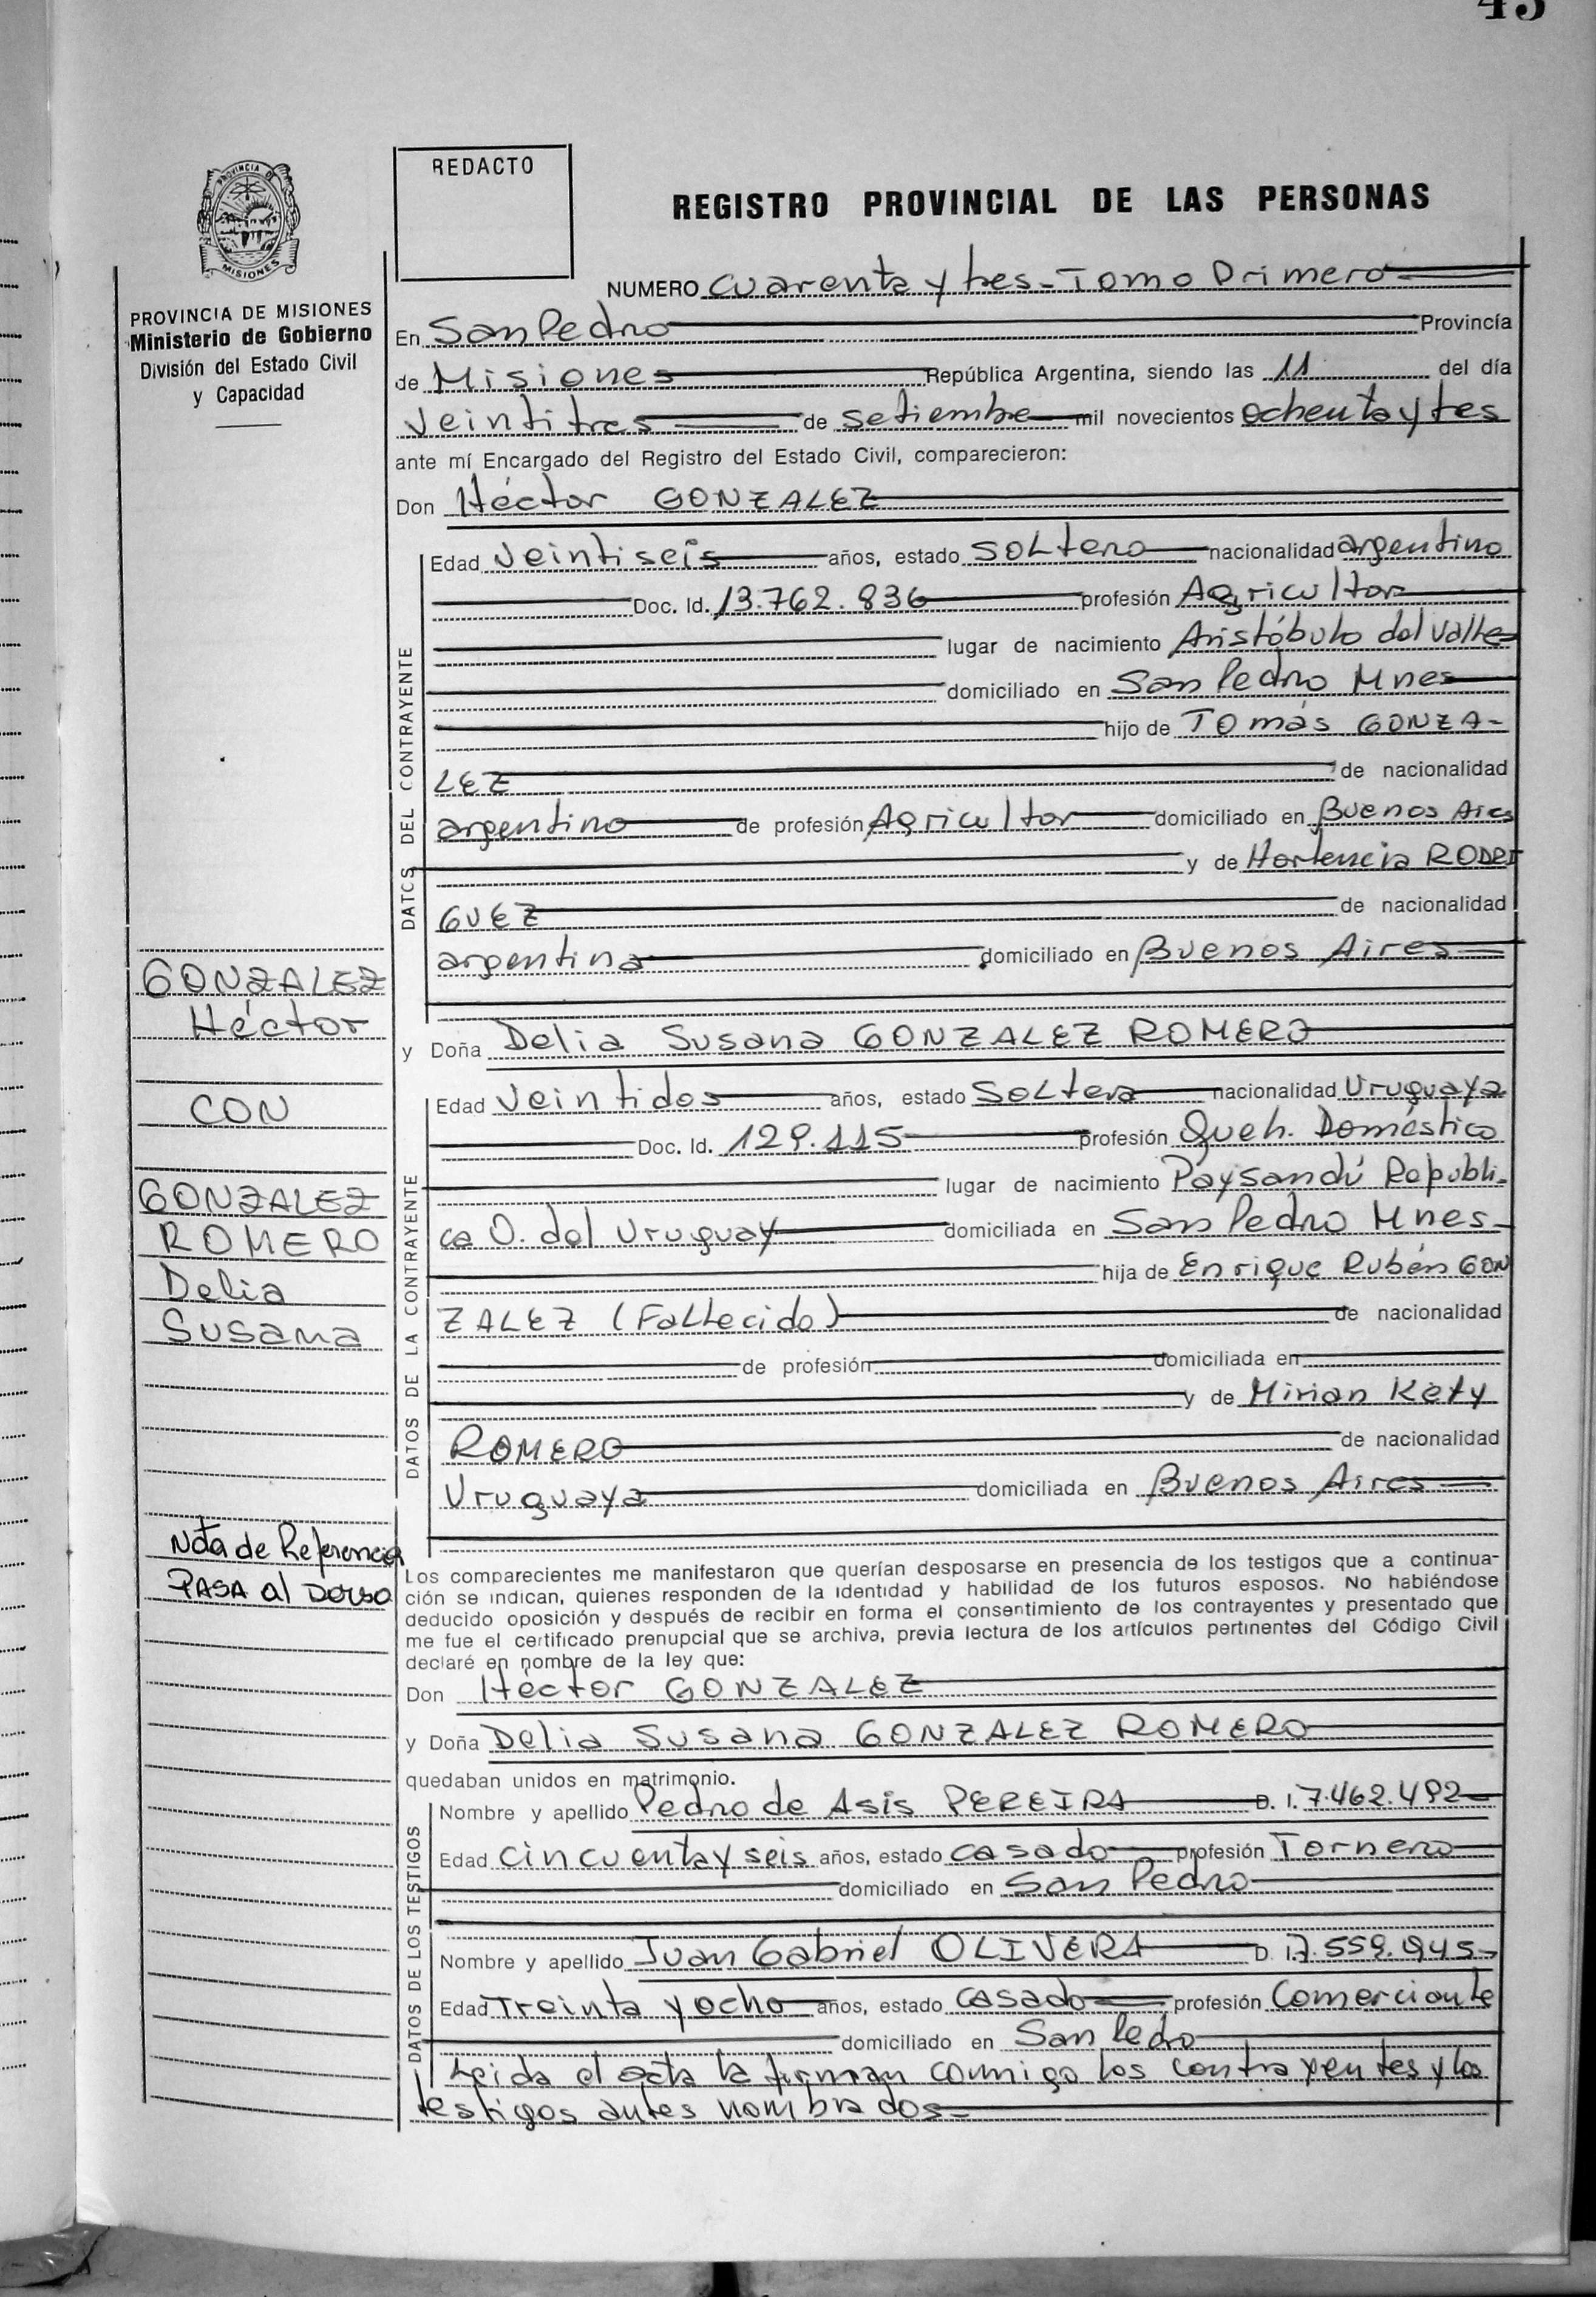 43
REDACTO
REGISTRO PROVINCIAL DE LAS PERSONAS
PROVINCIA DE
MISIONES
PROVINCIA DE MISIONES
Ministerio de Gobierno
División del Estado Civil
y Capacidad
NUMERO cuarenta y tres - Tomo Primero
En San Pedro Provincia
de Misiones República Argentina, siendo las 11 del día
veintitres de setiembre mil novecientos ochenta y tres
ante mí Encargado del Registro del Estado Civil, comparecieron:
Don Héctor GONZALEZ
DATOS DEL CONTRAYENTE
Edad veintiseis años, estado soltero nacionalidad argentino
Doc. Id. 13.762.836 profesión Agricultor
lugar de nacimiento Aristóbulo del Valle
domiciliado en San Pedro Mnes
hijo de Tomás GONZA-
LEZ de nacionalidad
argentino de profesión Agricultor domiciliado en Buenos Aires
y de Hortencia RODRI
GUEZ de nacionalidad
argentina domiciliado en Buenos Aires
GONZALEZ
Héctor
CON
GONZALEZ
ROMERO
Delia
Susana
y Doña Delia Susana GONZALEZ ROMERO
DATOS DE LA CONTRAYENTE
Edad veintidos años, estado soltera nacionalidad Uruguaya
Doc. Id. 129.115 profesión Queh. Doméstico
lugar de nacimiento Paysandú Republi-
ca O. del Uruguay domiciliada en San Pedro Mnes-
hija de Enrique Rubén GON
ZALEZ (Fallecido) de nacionalidad
de profesión domiciliada en
y de Mirian Kety
ROMERO de nacionalidad
Uruguaya domiciliada en Buenos Aires
Nota de Referencia
PASA al Dorso
Los comparecientes me manifestaron que querían desposarse en presencia de los testigos que a continua-
ción se indican, quienes responden de la identidad y habilidad de los futuros esposos. No habiéndose
deducido oposición y después de recibir en forma el consentimiento de los contrayentes y presentado que
me fue el certificado prenupcial que se archiva, previa lectura de los artículos pertinentes del Código Civil
declaré en nombre de la ley que:
Don Héctor GONZALEZ
y Doña Delia Susana GONZALEZ ROMERO
quedaban unidos en matrimonio.
DATOS DE LOS TESTIGOS
Nombre y apellido Pedro de Asis PEREIRA D. I. 7.462.492
Edad cincuenta y seis años, estado casado profesión Tornero
domiciliado en San Pedro
Nombre y apellido Juan Gabriel OLIVERA D. I. 7.559.945-
Edad Treinta y ocho años, estado casado profesión Comerciante
domiciliado en San Pedro
Leida el acta la firman conmigo los contrayentes y los
testigos antes nombrados-